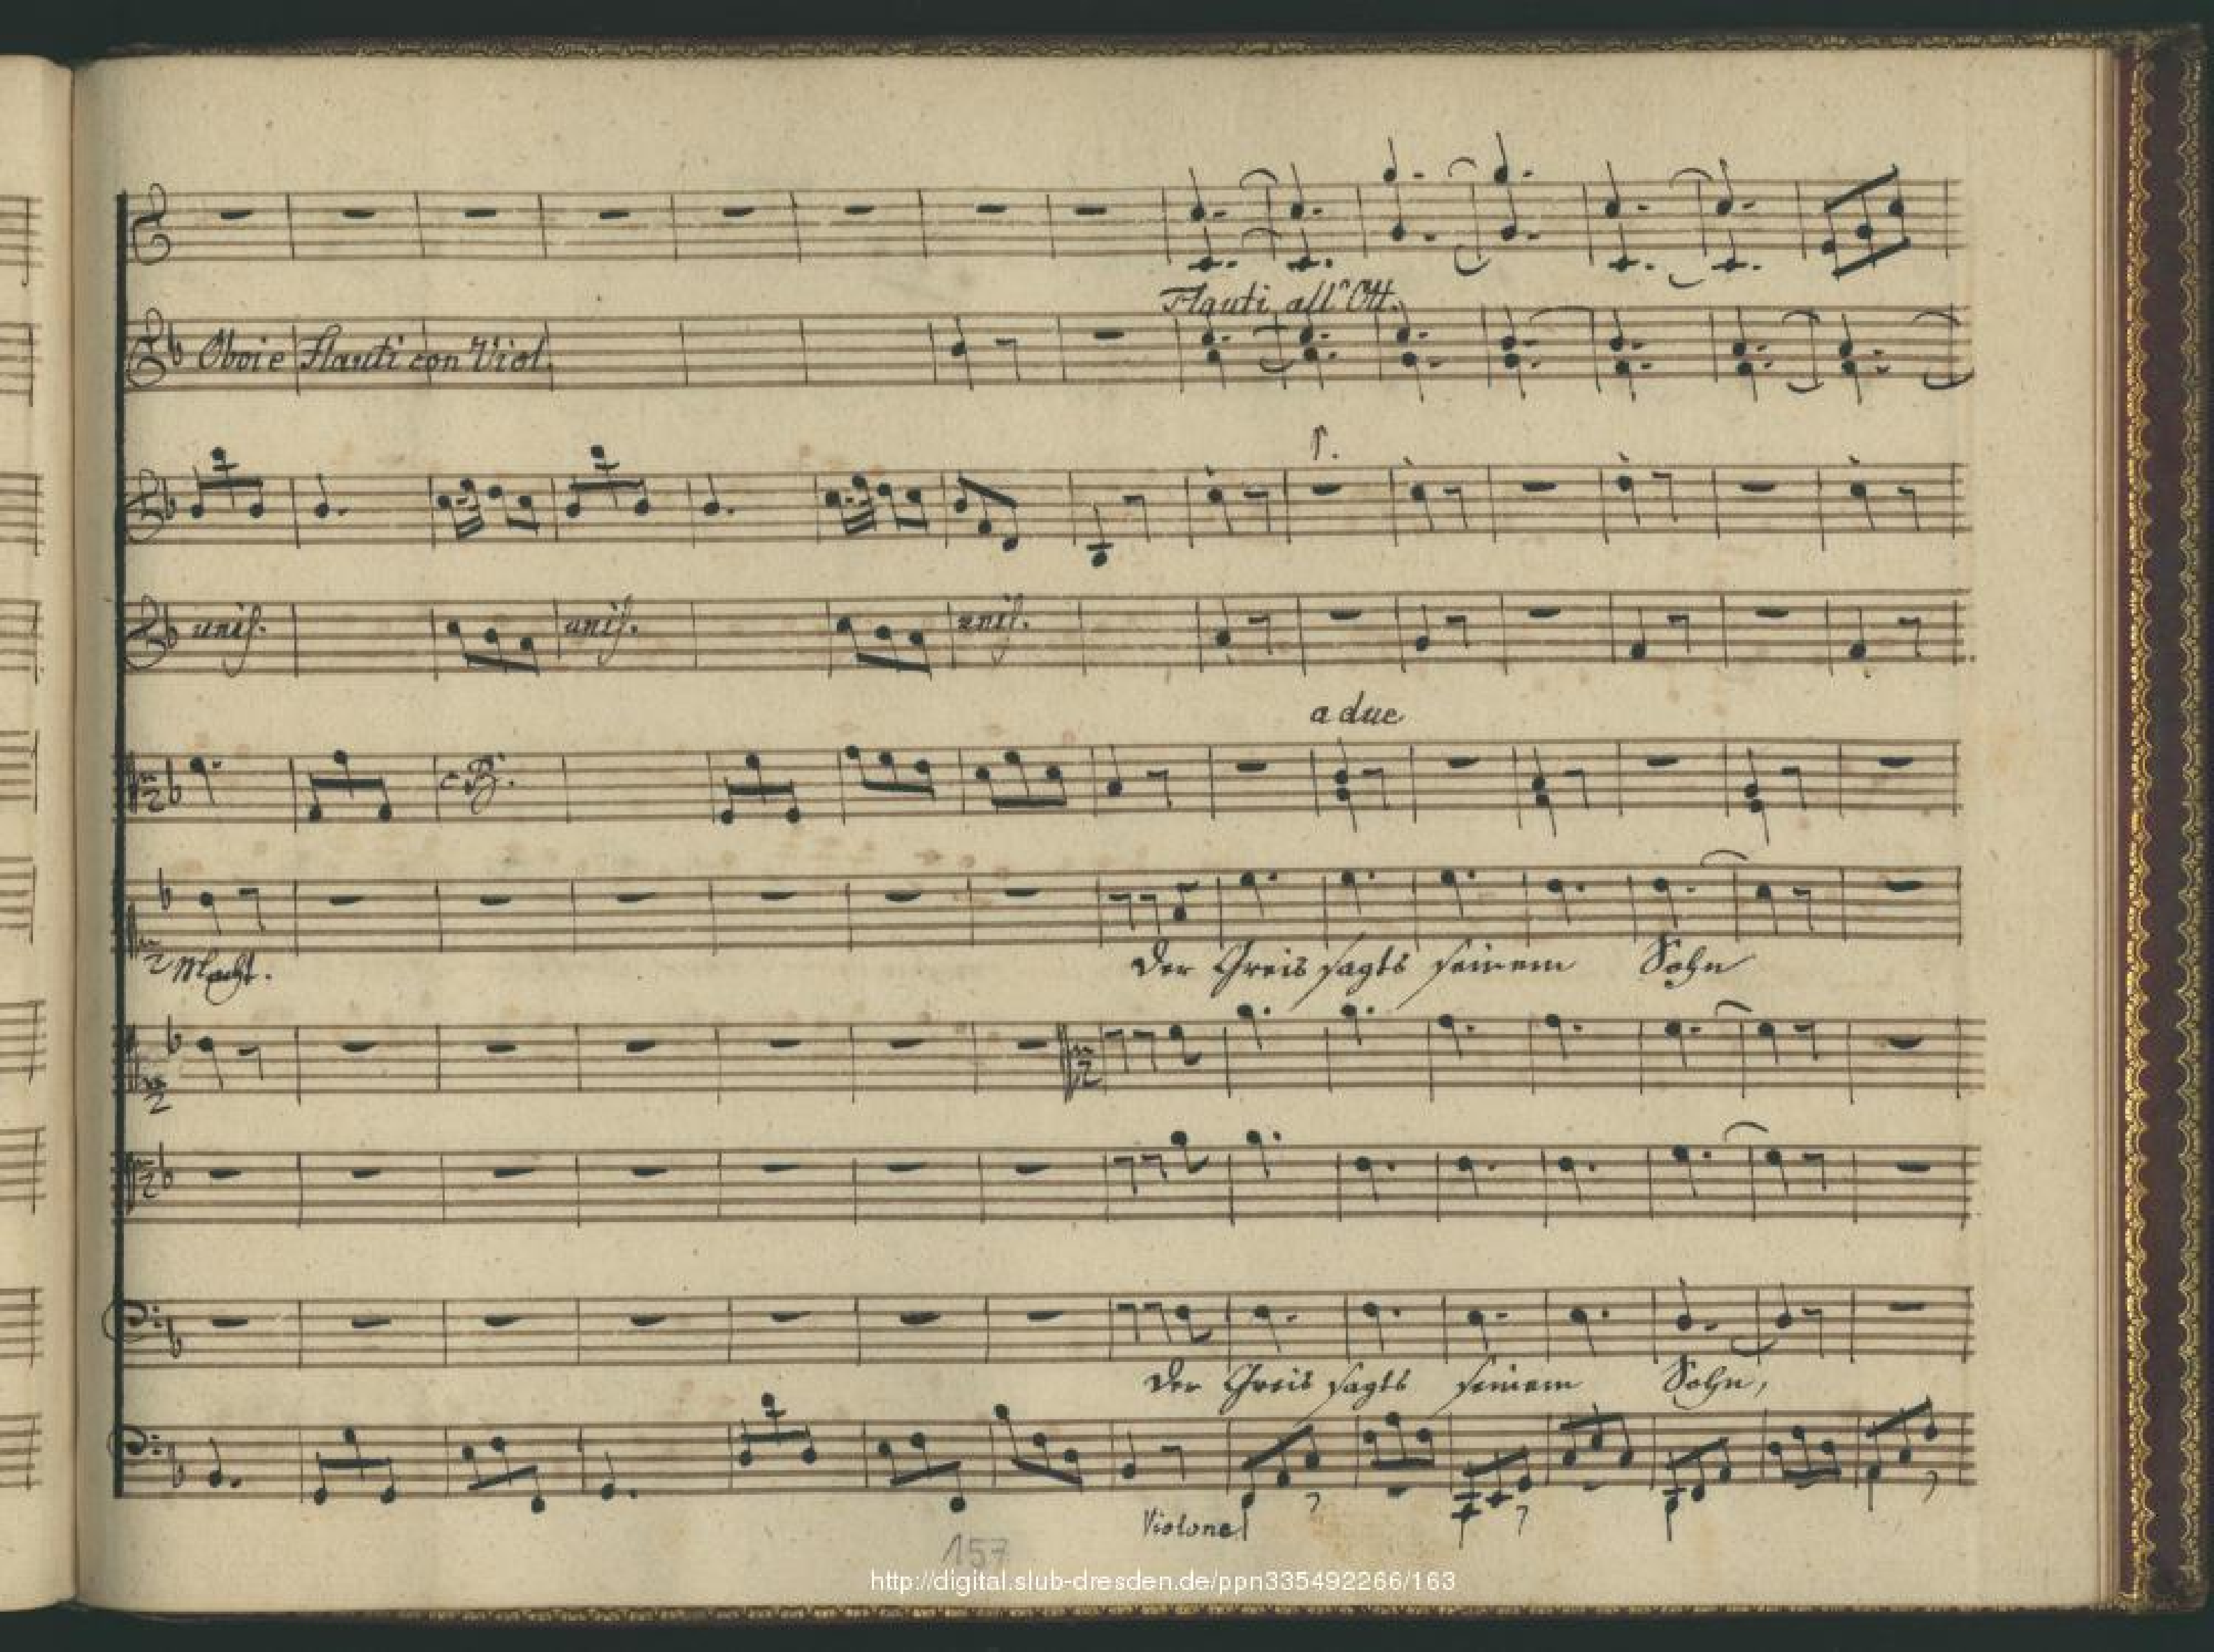 Flauti all' Ott.
Oboie Flauti con Viol.
unis. unis. unis.
a due
c B.
Macht. Der Greis sagts seinem Sohn
Der Greis sagts seinem Sohn,
Violone
157
http://digital.slub-dresden.de/ppn335492266/163